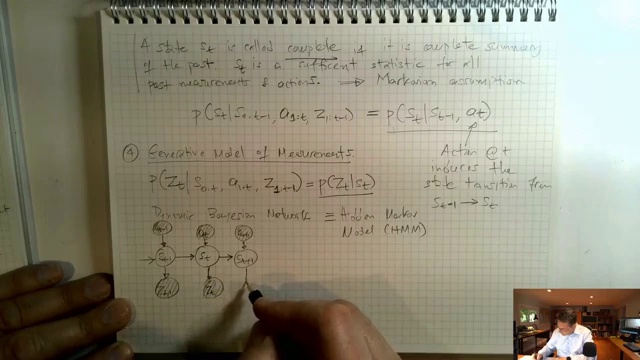 A state St is called complete if it is complete summary
of the past St is a sufficent statistic for all
past measurements & actions. ⇒ Markovian assumption
p(St|S0:t-1, a1:t, Z1:t-1) = p(St|St-1, at)
④ Generative Model of Measurements.
Action @ t
induces the
state transition from
St-1 → St
p(Zt|S0:t, a1:t, Z1:t-1) = p(Zt|St)
Dynamic Bayesian Network ≡ Hidden Markov
Model (HMM)
at-1 at at+1
St-1 St St+1
Zt-1 Zt